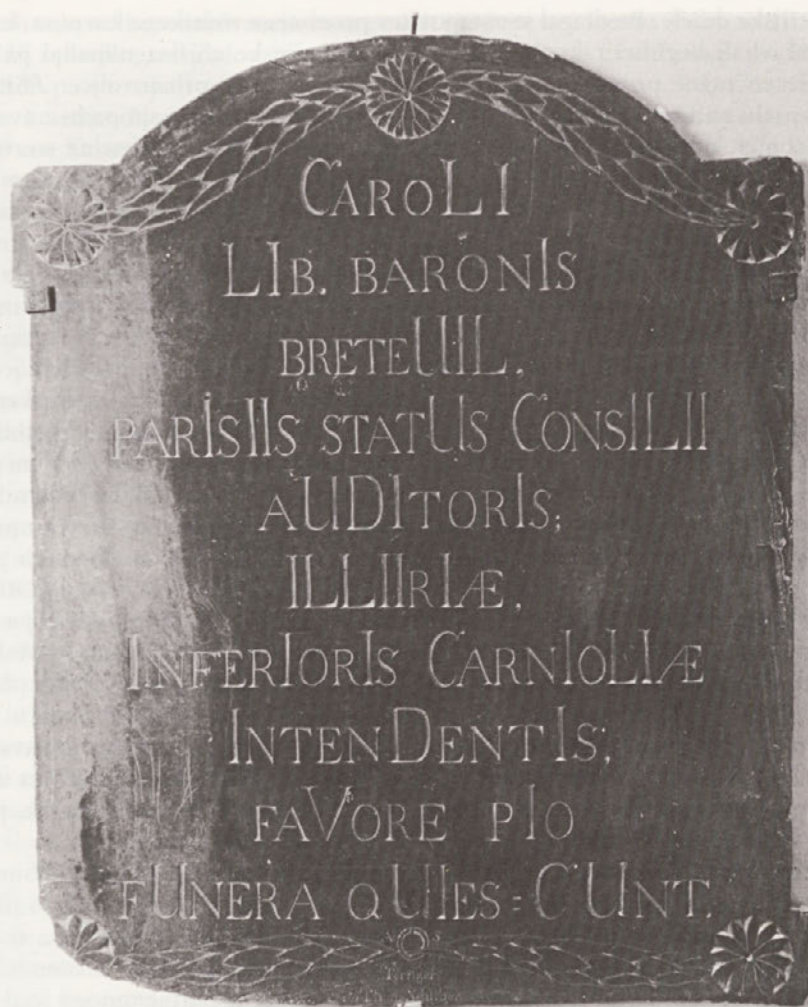 CAROLI
LIB. BARONIS
BRETEUIL,
PARISIIS STATUS CONSILII
AUDITORIS;
ILLIIRIÆ,
INFERIORIS CARNIOLIÆ
INTENDENTIS;
FAVORE PIO
FUNERA QUIES=CUNT.